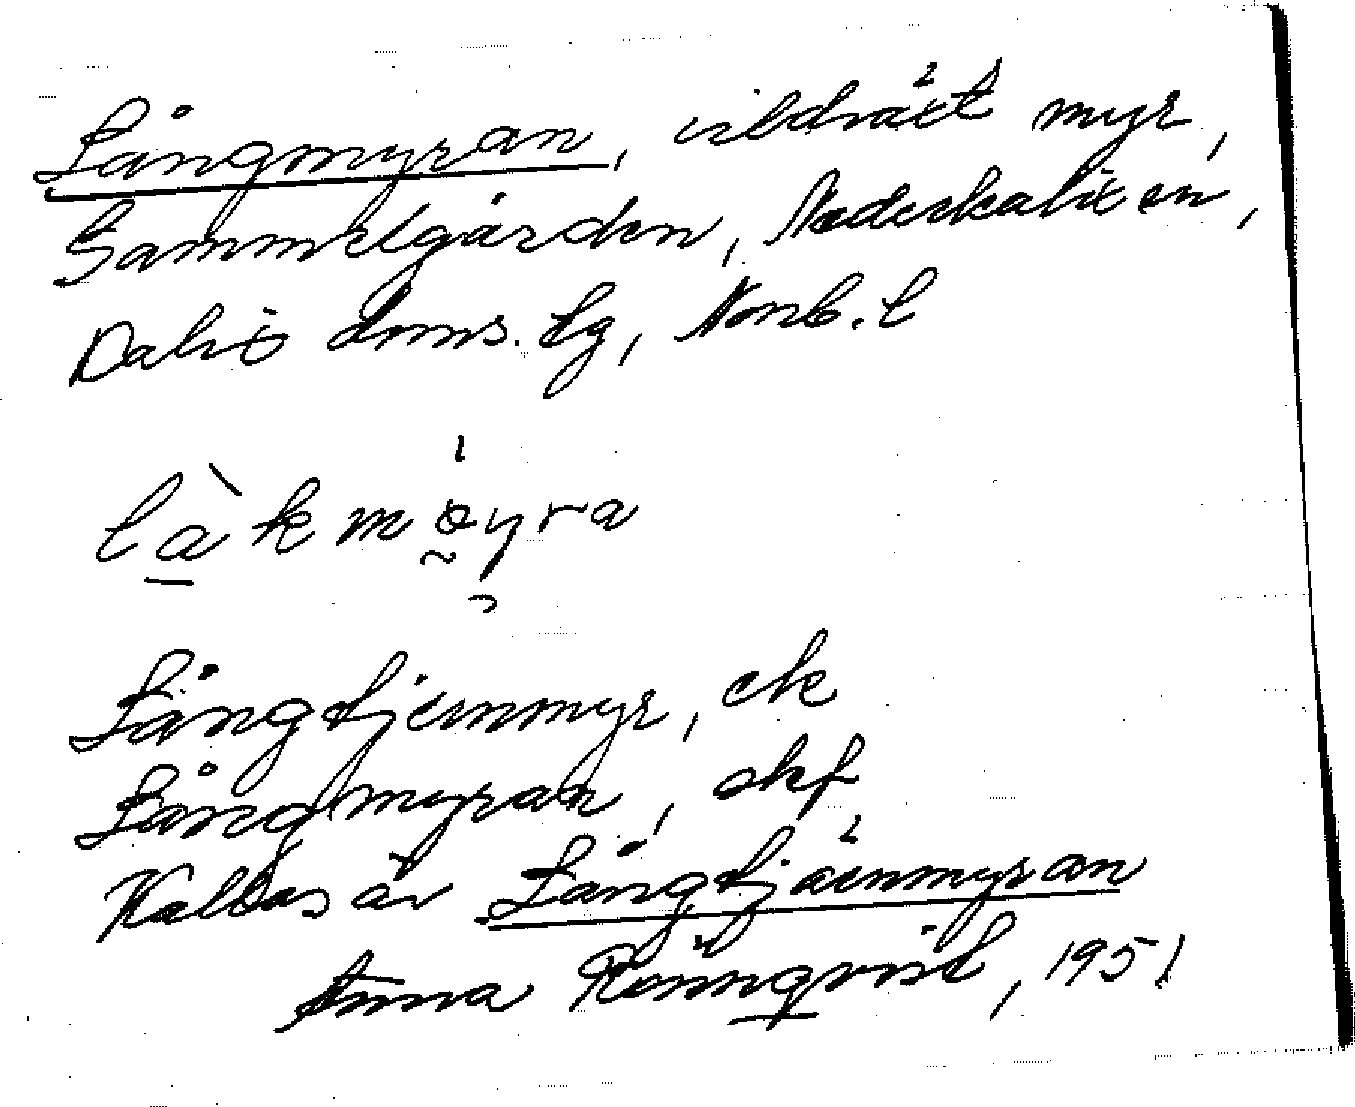 Långmyran, vildväxt myr,
Sammelgården, Nederkalixen,
Kalix doms. tg, Norrb. l
làkmøyra
Långtjernmyr, ek
Långmyran, akf
Kallas äv Långtjärnmyran
Anna Rönnqvist, 1951